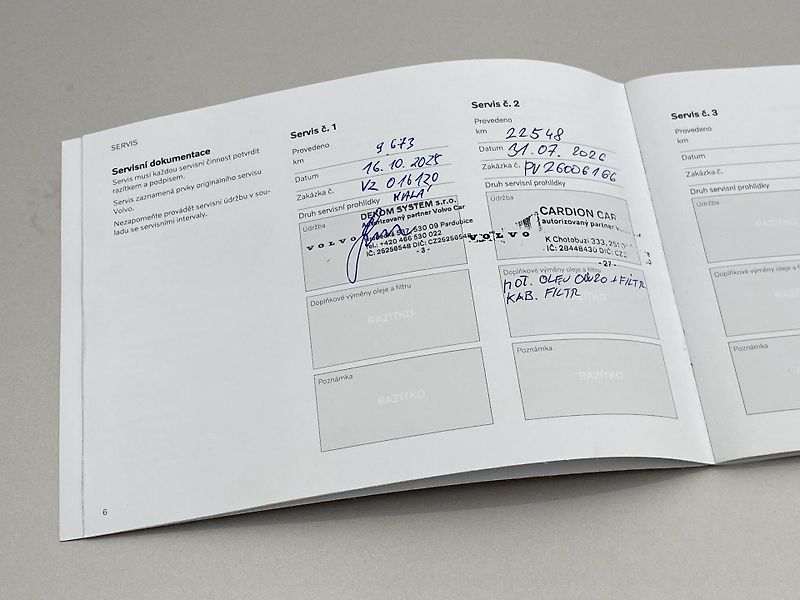 SERVIS
Servisní dokumentace
Servis musí každou servisní činnost potvrdit
razítkem a podpisem.
Servis zaznamená prvky originálního servisu
Volvo.
Nezapomeňte provádět servisní údržbu v sou-
ladu se servisními intervaly.
6
Servis č. 1
Provedeno
km 9 673
Datum 16. 10. 2025
Zakázka č. VZ 016120
Druh servisní prohlídky MALÁ
DEKOM SYSTEM s.r.o.
Autorizovaný partner Volvo Car
VOLVO 530 09 Pardubice
Tel.: +420 466 530 022
IČ: 25256548 DIČ: CZ25256548
- 3 -
Doplňkové výměny oleje a filtru
RAZÍTKO
Poznámka
RAZÍTKO
Servis č. 2
Provedeno
km 22548
Datum 31. 07. 2026
Zakázka č. PV26006166
Druh servisní prohlídky
Údržba
CARDION CAR
autorizovaný partner
VOLVO
K Chotobuzi 333, 251
IČ: 28448430 DIČ: CZ
- 27 -
Doplňkové výměny oleje a filtru
MOT. OLEJ 0W20 + FILTR
KAB. FILTR
Poznámka
RAZÍTKO
Servis č. 3
Provedeno
km
Datum
Zakázka č.
Druh servisní prohlídky
Údržba
RAZÍTKO
Doplňkové výměny
RAZÍTKO
Poznámka